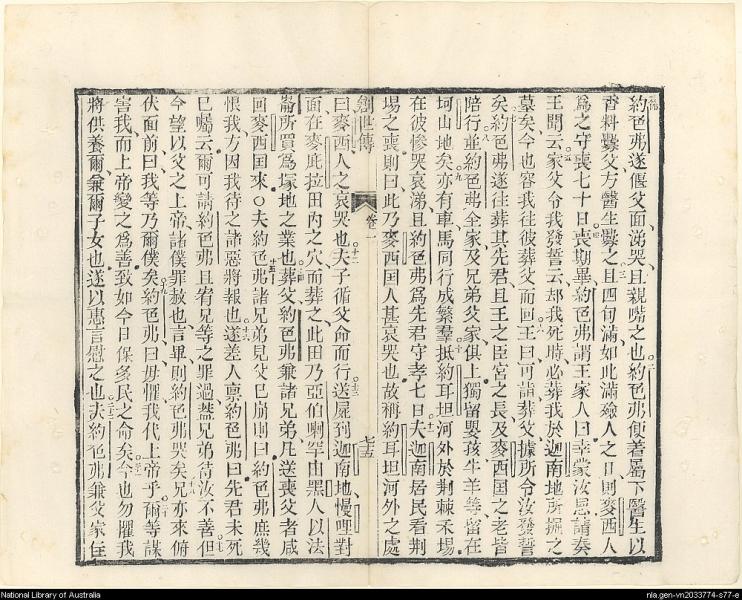 約色弗遂偃父面涕哭且親嘴之也約色弗便着屬下醫生以
香料釁父方醫生釁之且四旬滿如此滿殮人之日則麥西人
為之守喪七十日喪期畢約色弗謂王家人曰幸蒙汝恩請奏
王聞云家父令我發誓云却我死時必葬我於迦南地所掘之
墓矣今也容我往彼葬父而回王曰可詣葬父據所令汝發誓
矣約色弗遂往葬其先君且王之臣宮之長及麥西國之老皆
陪行並約色弗全家及兄弟父家俱上獨留嬰孩牛羊等留在
坷山地矣亦有車馬同行成繁羣抵約耳坦河外於荆棘禾場
在彼慘哭哀涕且約色弗為先君守孝七日夫迦南居民看荆
場之喪則曰此乃麥西国人甚哀哭也故稱約耳坦河外之處
創世傳
卷一
七五
曰麥西人之哀哭也夫子循父命而行送屍到迦南地慢哩對
面在麥庇拉田內之穴而葬之此田乃亞伯喇罕由黑人以法
崙所買為塚地之業也葬父約色弗兼諸兄弟凡送喪父者咸
回麥西国來○夫約色弗諸兄弟見父已崩則曰約色弗庶幾
恨我方因我待之諸惡將報也遂差人禀約色弗曰先君未死
已囑云爾可請約色弗且宥兄等之罪過蓋兄弟待汝不善但
今望以父之上帝諸僕罪赦也言畢則約色弗哭矣兄亦來俯
伏面前曰我等乃爾僕矣約色弗曰毋懼我代上帝乎爾等謀
害我而上帝變之為善致如今日保多民之命矣今也勿懼我
將供養爾兼爾子女也遂以惠言慰之也夫約色弗兼父家住
National Library of Australia
nla.gen-vn2033774-s77-e